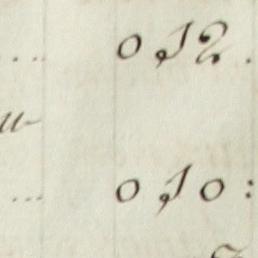 ... 0 , 12 .
u
... 0 , 10 :